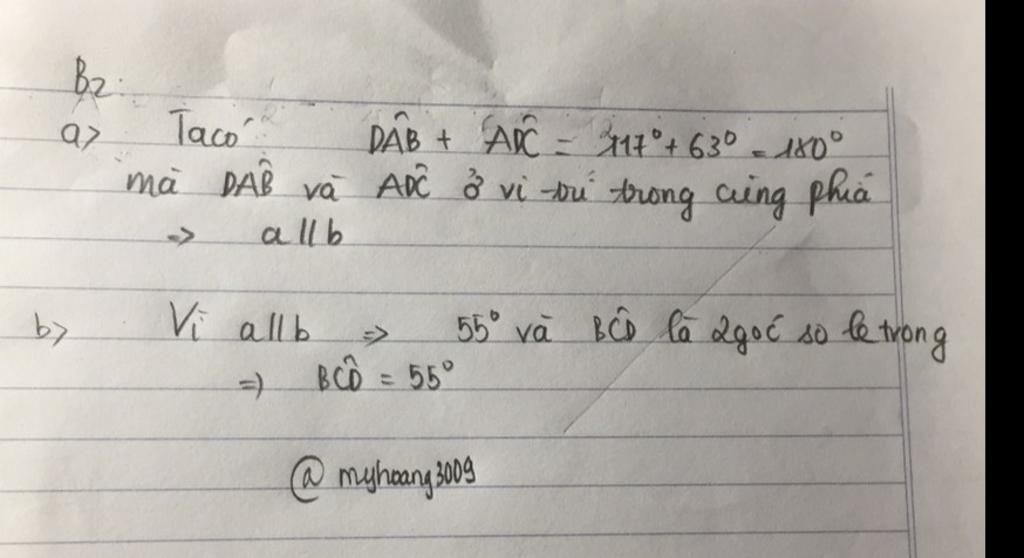 B2:
a> Ta có DAB̂ + ADĈ = 117° + 63° = 180°
mà DAB̂ và ADĈ ở vị trí trong cùng phía
=> a // b
b> Vì a // b => 55° và BCD̂ là 2 góc so le trong
=> BCD̂ = 55°
@myhoang3009